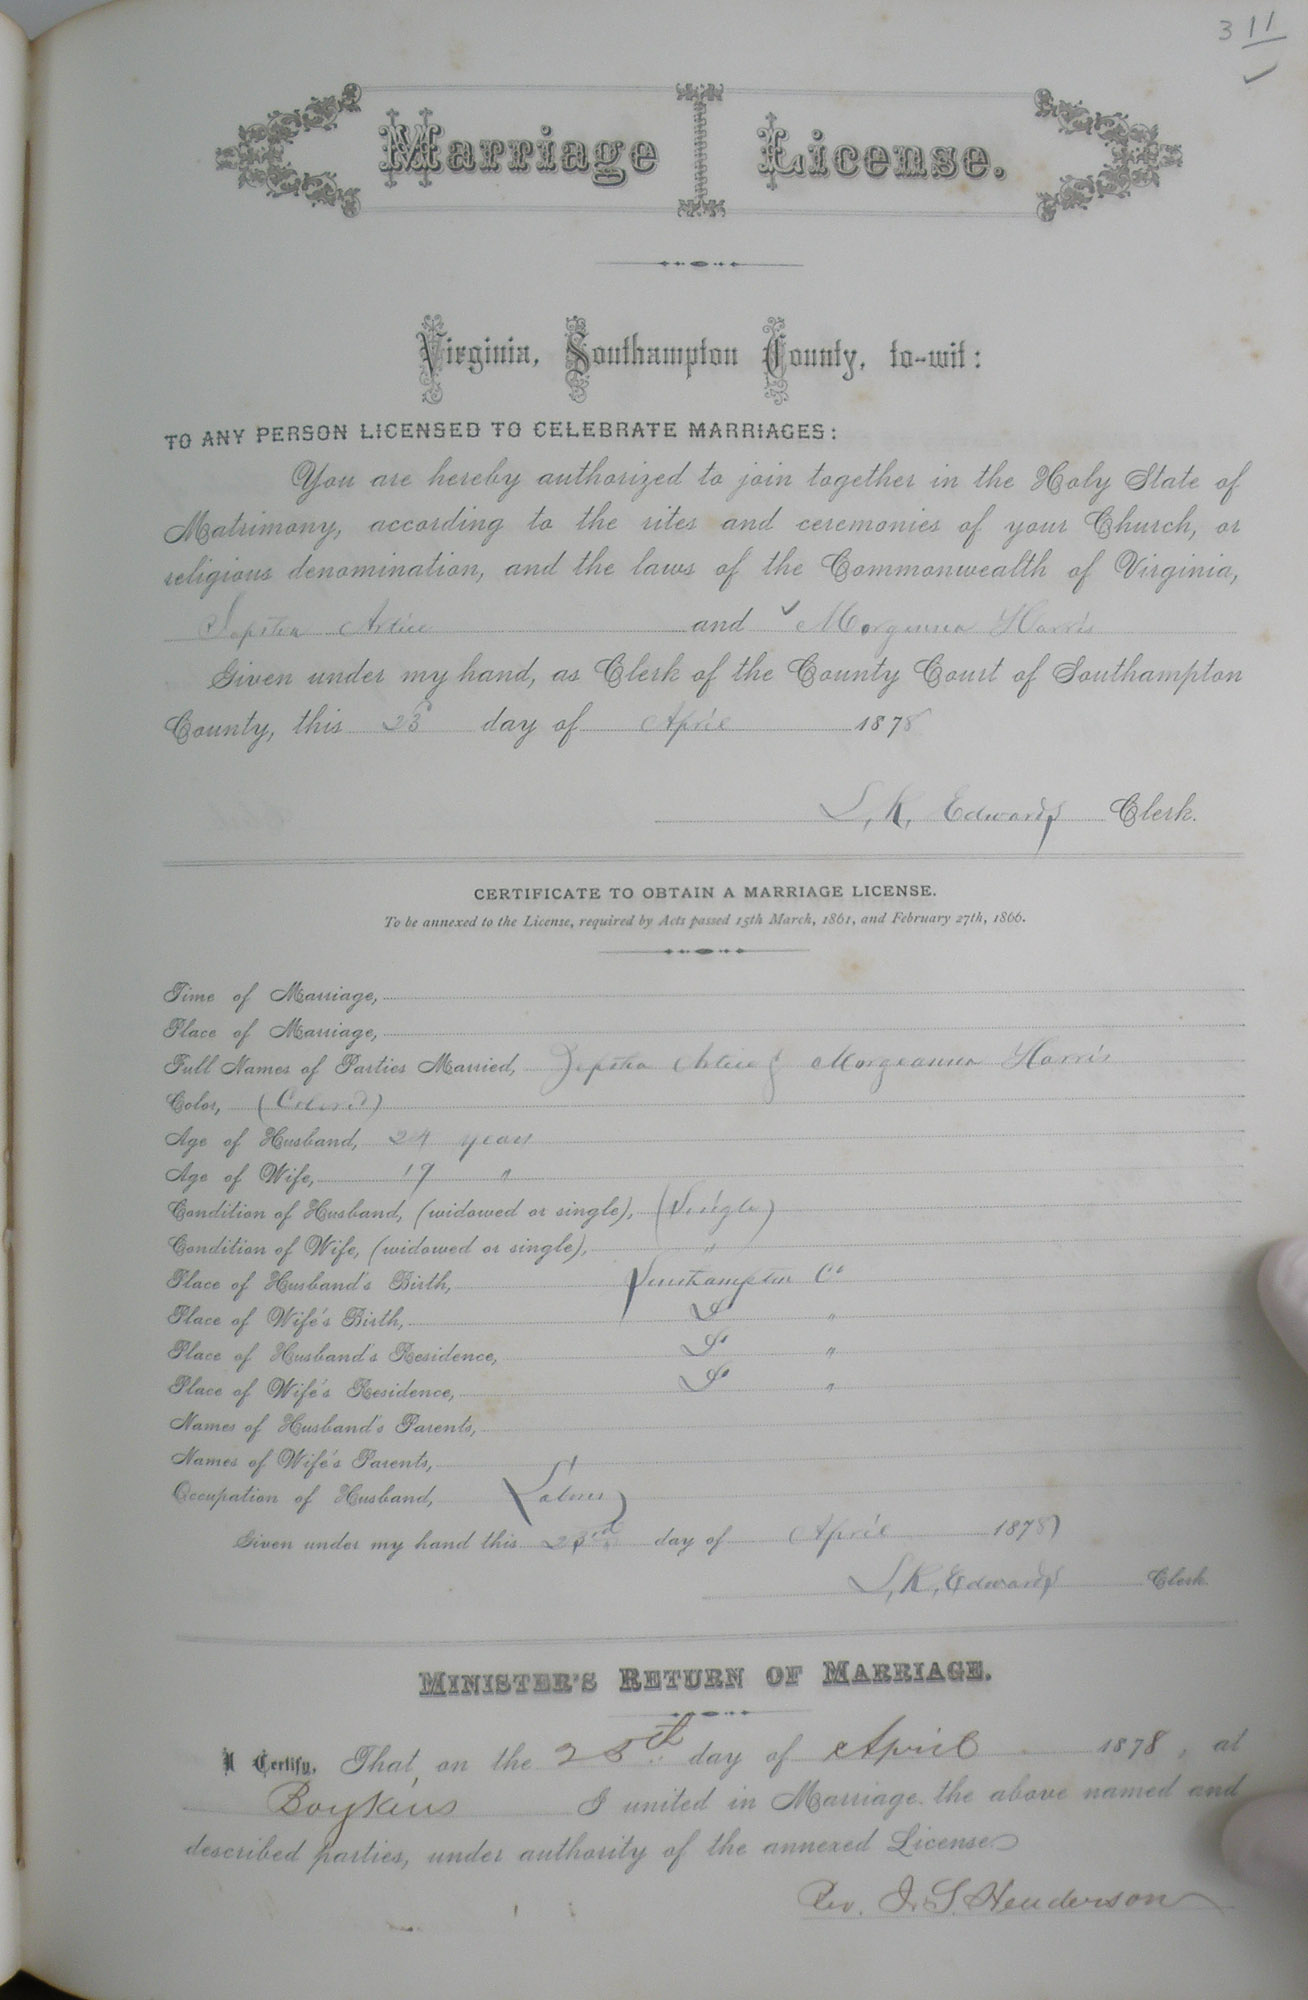 3 11
Marriage License.
Virginia, Southampton County, to-wit:
TO ANY PERSON LICENSED TO CELEBRATE MARRIAGES:
You are hereby authorized to join together in the Holy State of
Matrimony, according to the rites and ceremonies of your Church, or
religious denomination, and the laws of the Commonwealth of Virginia,
Artice and ✓ Morgeanna Harris
Given under my hand, as Clerk of the County Court of Southampton
County, this 23 day of April 1878
L. R. Edwards Clerk.
CERTIFICATE TO OBTAIN A MARRIAGE LICENSE.
To be annexed to the License, required by Acts passed 15th March, 1861, and February 27th, 1866.
Time of Marriage,
Place of Marriage,
Full Names of Parties Married, Jeptha Artice & Morgeanna Harris
Color, (Colored)
Age of Husband, 24 years
Age of Wife, 17 "
Condition of Husband, (widowed or single), (Single)
Condition of Wife, (widowed or single), "
Place of Husband's Birth, Southampton Co
Place of Wife's Birth, Do "
Place of Husband's Residence, Do "
Place of Wife's Residence, Do "
Names of Husband's Parents,
Names of Wife's Parents,
Occupation of Husband, Laborer
Given under my hand this 23rd day of April 1878
L. R. Edwards Clerk.
MINISTER'S RETURN OF MARRIAGE.
I Certify, That, on the 25th day of April 1878, at
Boykins I united in Marriage the above named and
described parties, under authority of the annexed License
Rev. J. S. Henderson